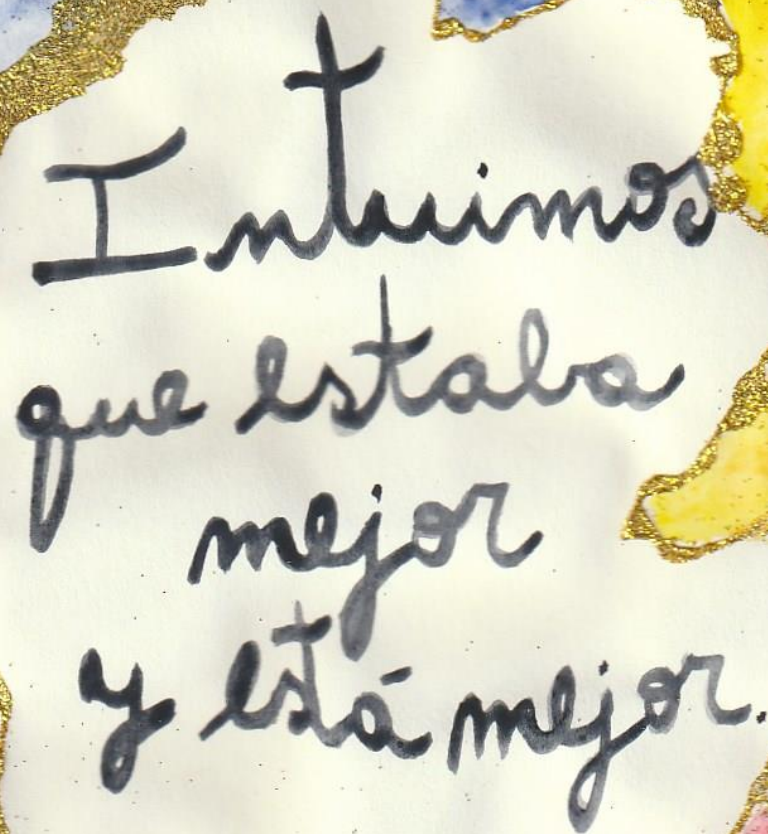 Intuimos
que estaba
mejor
y está mejor.